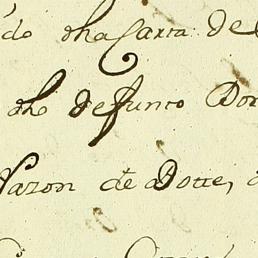 do dha Carta de
dho defunto Don
razon de Dotte,